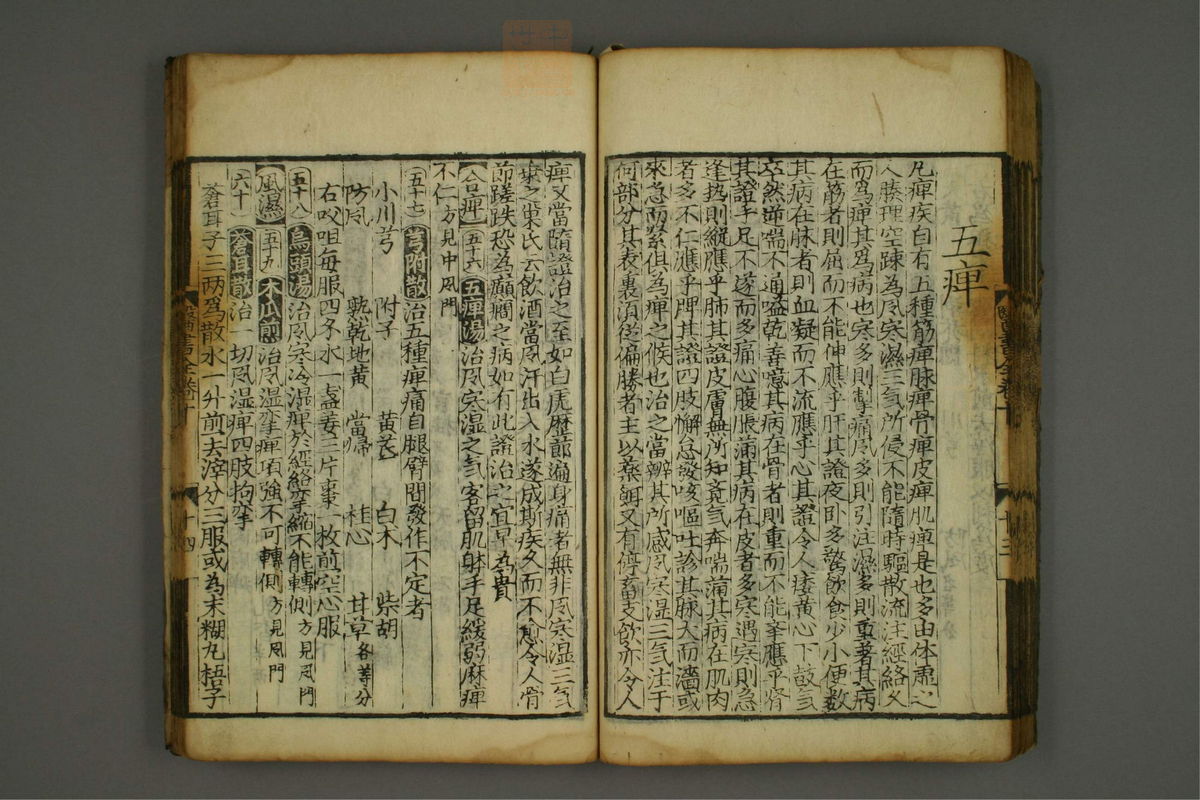 五痺
凡痺疾自有五種筋痺脉痺骨痺皮痺肌痺是也多由体虚之
人腠理空踈為风寒濕三气所侵不能隨時驅散流注經絡久
而為痺其為病也寒多則掣痛风多則引注濕多則重著其病
在筋者則屈而不能伸應乎肝其證夜卧多驚飲食少小便数
其病在脉者則血凝而不流應乎心其證令人痿黄心下鼓气
卒然逆喘不通嗌乾善噫其病在骨者則重而不能举應乎腎
其證手足不遂而多痛心腹脹滿其病在皮者多寒遇寒則急
逢热則縱應乎肺其證皮膚無所知竟气奔喘滿其病在肌肉
者多不仁應乎脾其證四肢懈怠發咳嘔吐診其脉大而濇或
來急而緊俱為痺之候也治之當辨其所感风寒湿三气注于
何部分其表裏須從偏勝者主以藥餌又有停蓄支飲亦令人
痺又當隨證治之至如白虎歷節遍身痛者無非风寒湿三气
乘之巢氏云飲酒當风汗出入水遂成斯疾久而不愈令人骨
節蹉跌恐為癲癇之病如有此證治之宜早為貴
合痺 五十六 五痺湯 治风寒湿之气客留肌体手足緩弱麻痺
不仁方見中风門
五十七 芎附散 治五種痺痛自腿臂間發作不定者
小川芎 附子 黄芪 白术 柴胡
防风 熟乾地黄 當歸 桂心 甘草各等分
右㕮咀每服四分水一盞姜三片棗一枚煎空心服
五十八 烏頭湯 治风寒冷湿痺於經絡孪縮不能轉側方見风門
風濕 五十九 木瓜煎 治风湿挛痺項強不可轉側方見风門
六十 蒼耳散 治一切风湿痺四肢拘挛
蒼耳子三两爲散水一升煎去滓分三服或為末糊丸梧子
醫書全卷十
十三
十四